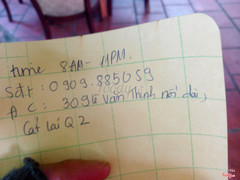 time 8AM - 11PM.
Sđt: 0909.885059
ĐC: 309 Lê Văn Thịnh nối dài,
Cát lái Q2